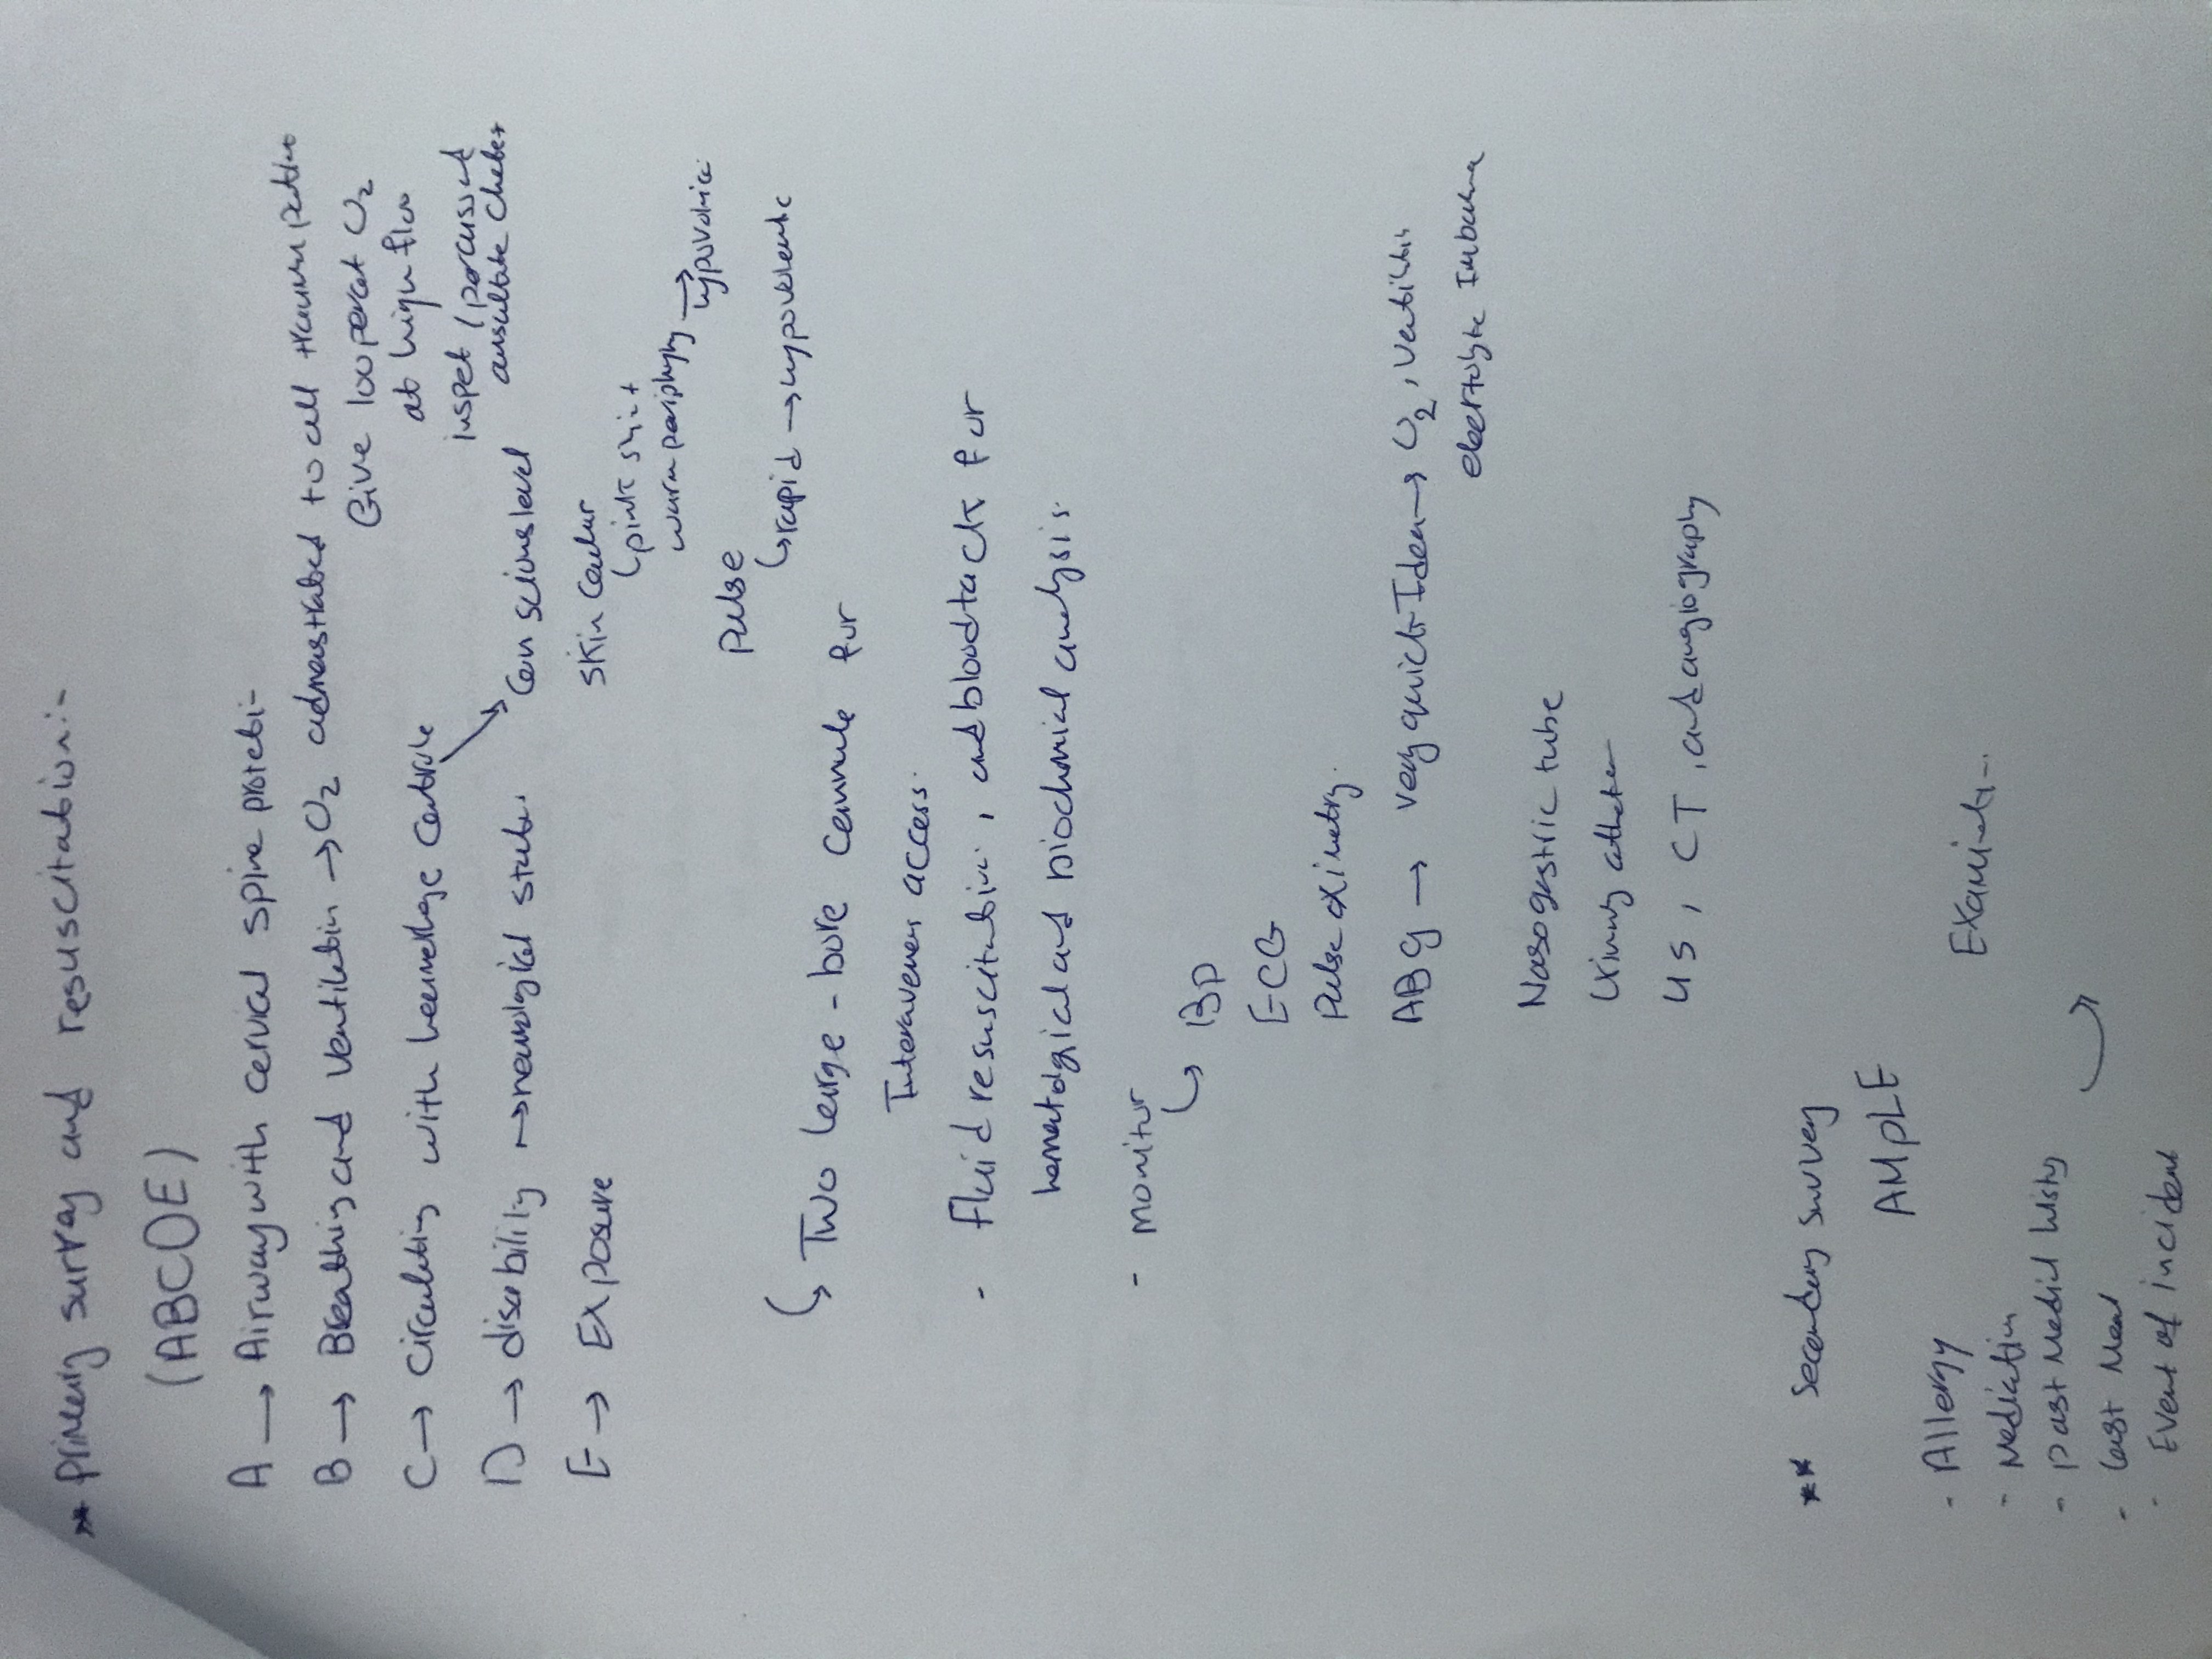 ** Primary survay and resuscitation:-
(ABCDE)
A → Airway with cervical spine protecti-
B → Breathing and ventilation → O2 admenstrated to all trauma patien
Give 100 percent O2
at high flow
inspect / percuss and
auscultate chest
C → circulating with heamerrhage controle
Conscious level
skin coulur
↳ pink skin +
warm periphry → hypovolmic
pulse
↳ rapid → hypovolemic
D → disability → neurological status
E → Exposure
↳ Two large-bore cannule for
Intravenous access.
- fluid resuscitation, and blood tack for
hematolgical and biochmical analysis.
- monitor
↳ BP
ECG
Pulse oximetry.
ABG → very quick Idea → O2, ventilation
electrolyte Imbalance
Nasogastric tube
Urinary catheter
US, CT, and angiography
** Secondary survey
AMPLE
- Allergy
- Medication
- past Medical histy
- last Meal
- Event of incident
Examinati-.